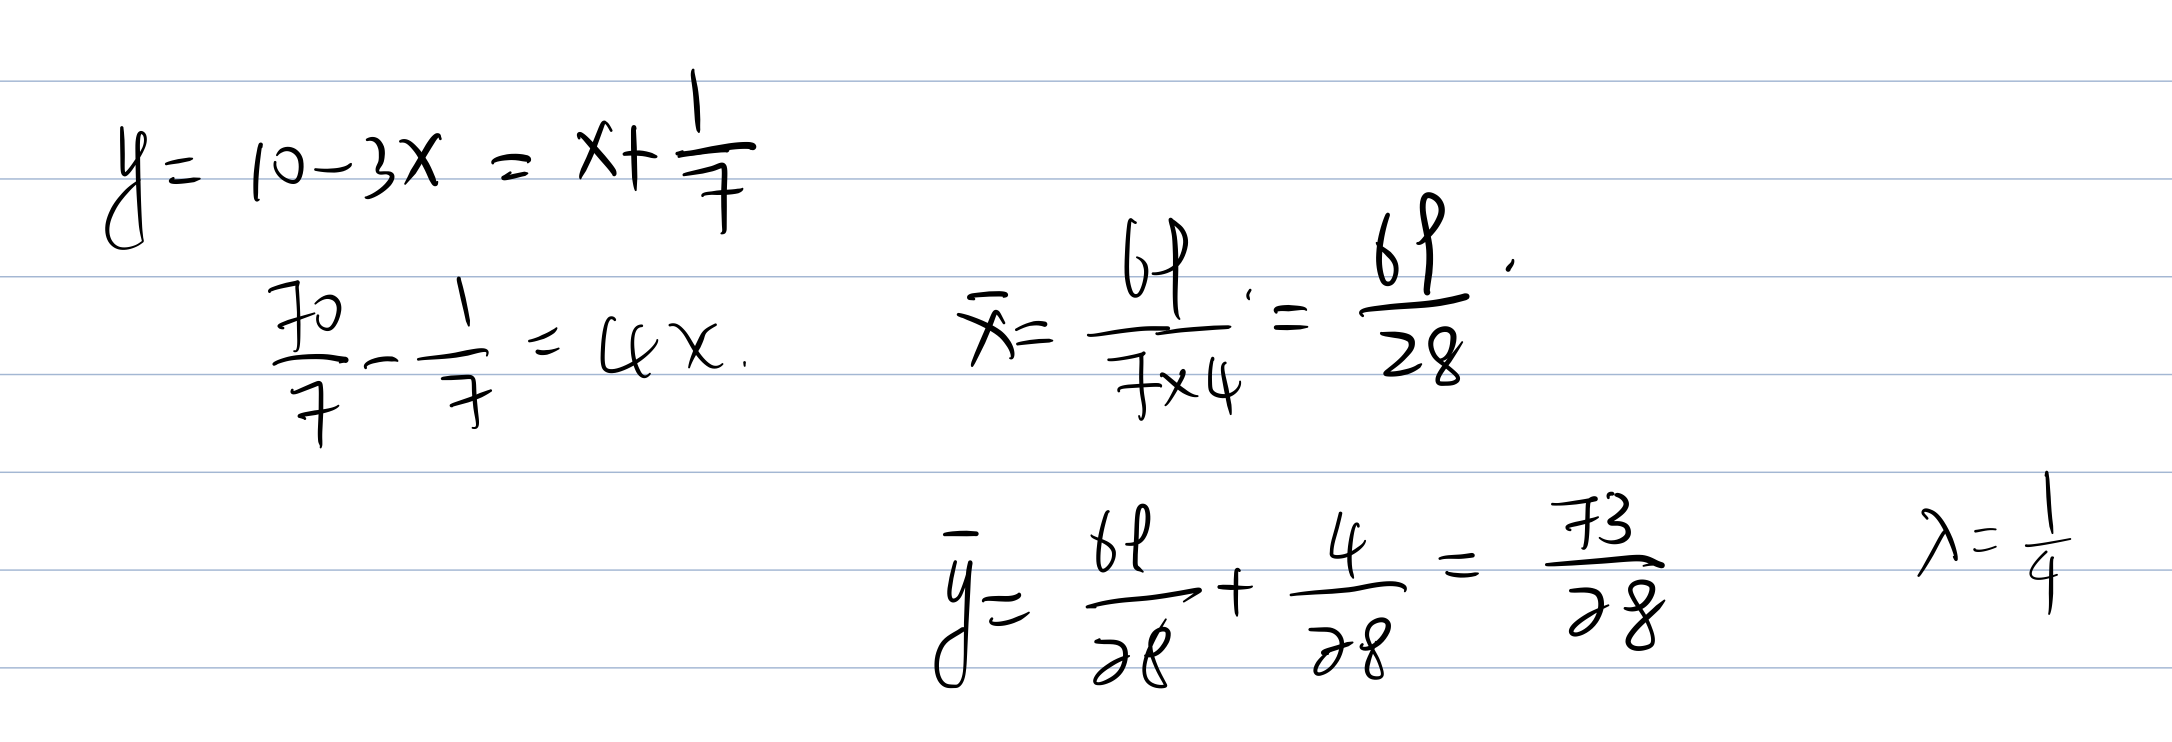 y = 10 - 3x = x + 1/7
70/7 - 1/7 = 4x.
x̄ = 69/(7×4) = 69/28.
ȳ = 69/28 + 4/28 = 73/28
λ = 1/4